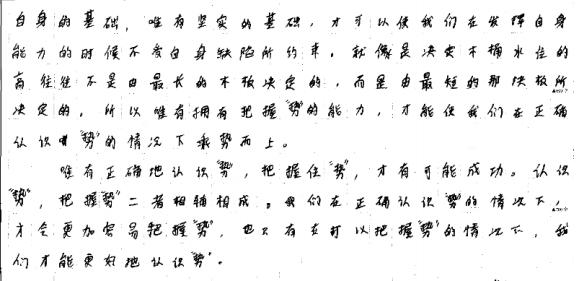 自身的基础，唯有坚实的基础，才可以使我们在发挥自身
能力的时候不受自身缺陷所约束。就像是决定木桶水位的
高往往不是由最长的木板决定的，而是由最短的那块板所
决定的。所以唯有拥有把握“势”的能力，才能使我们在正确
认识“势”的情况下乘势而上。
唯有正确地认识“势”，把握住“势”，才有可能成功。认识
“势”，把握“势”二者相辅相成。我们在正确认识“势”的情况下，
才会更加容易把握“势”，也只有在可以把握“势”的情况下，我
们才能更好地认识“势”。